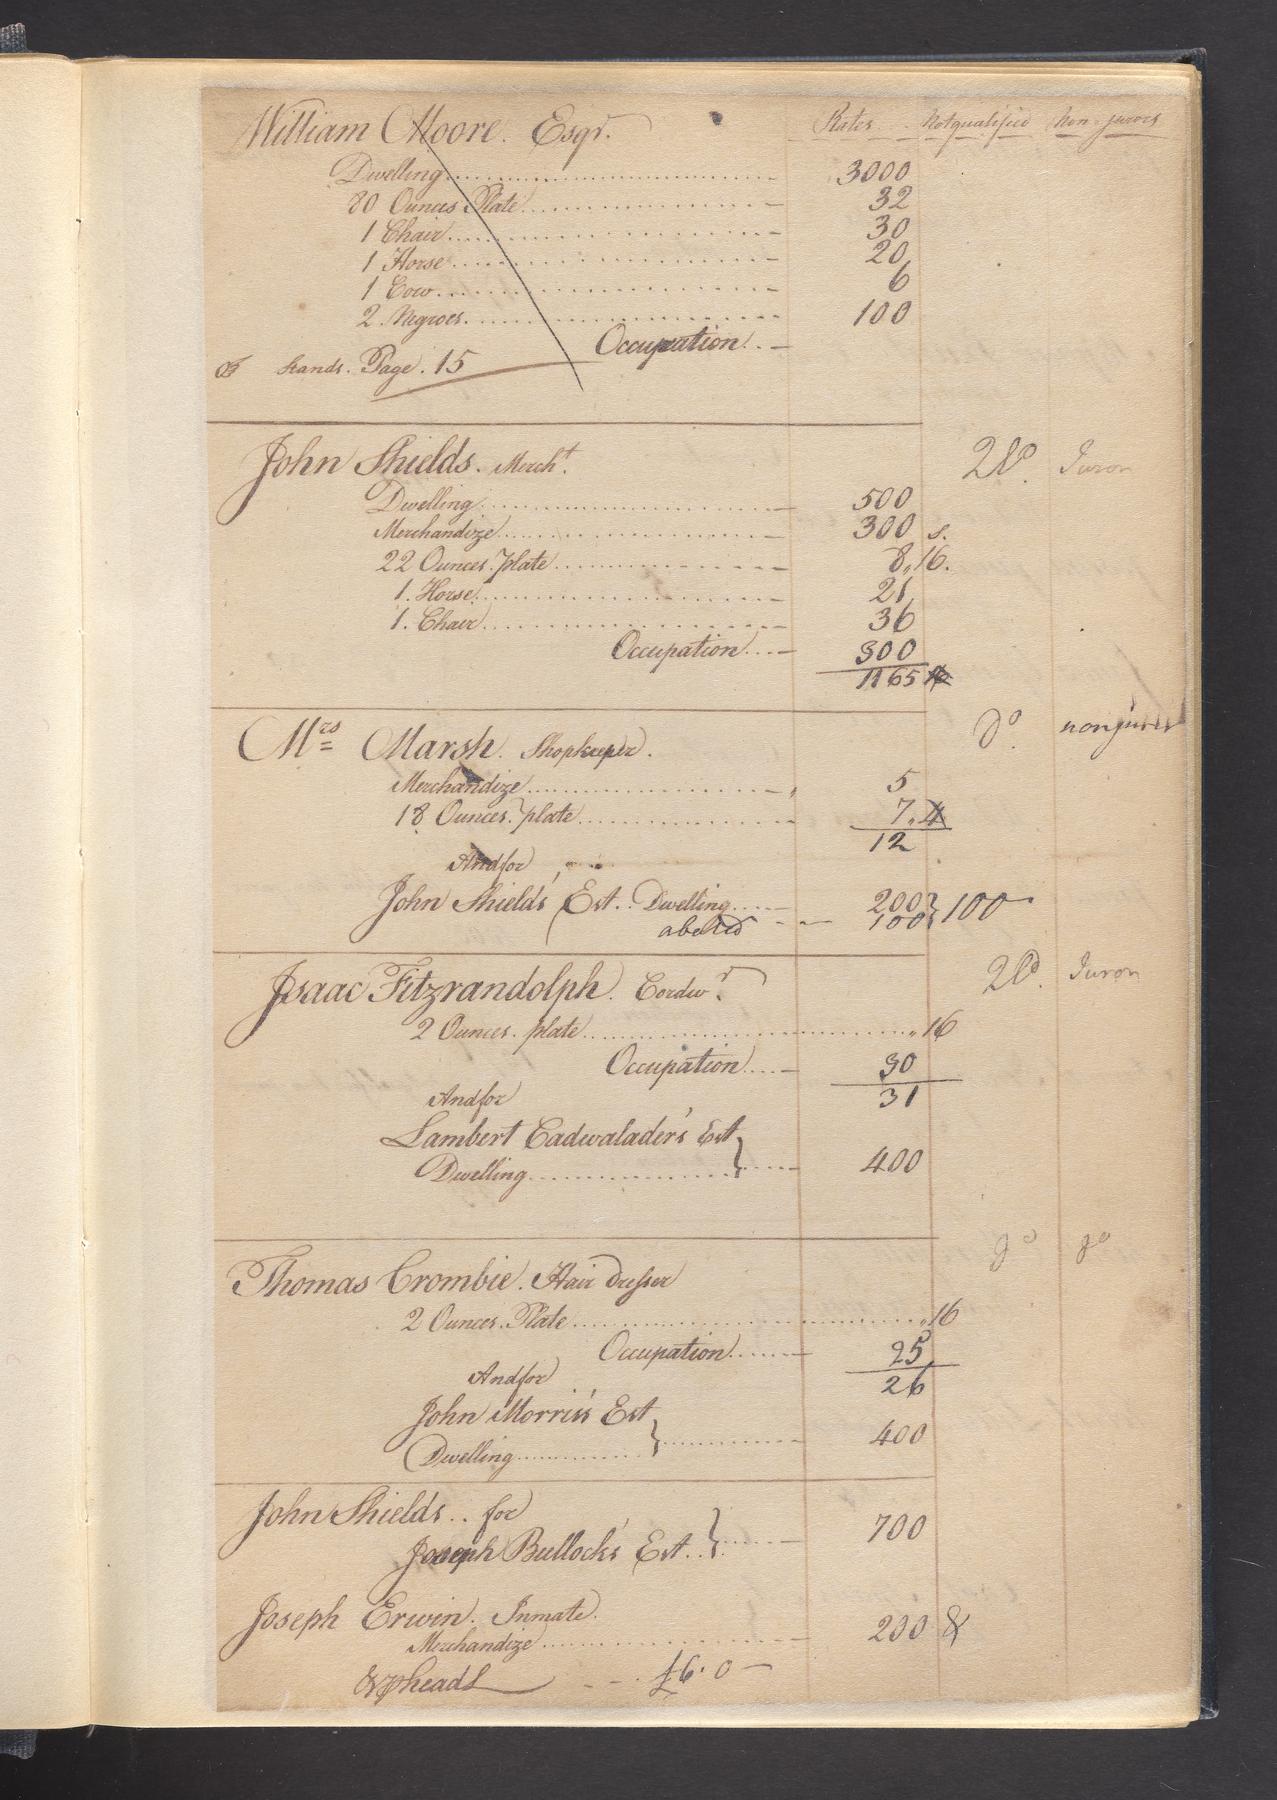 William Moore. Esqr. Rates Notqualified Non-jurors
Dwelling 3000
80 Ounces Plate 32
1 Chair 30
1 Horse 20
1 Cow 6
2 Negroes 100
Occupation
Stands. Page. 15
John Shields. Mercht. Juror
Dwelling 500
Merchandize 300 s.
22 Ounces. plate 8,,16.
1. Horse 21
1. Chair 36
Occupation 300
1165
Mrs Marsh. Shopkeeper. Do. nonjuror
Merchandize 5
18 Ounces. plate 7,,4
12
Andfor
John Shield's Est.. Dwelling 200 } 100
abated 100
Isaac Fitzrandolph. Cordwr. Juror
2 Ounces. plate ,,16
Occupation 30
31
Andfor
Lambert Cadwalader's Est
Dwelling } 400
Do Do
Thomas Crombie. Hair dresser
2 Ounces. Plate ,,16
Occupation 25
26
Andfor
John Morris's Est
Dwelling } 400
John Shields.. for
Joseph Bullock's Est.. } 700
Joseph Erwin. Inmate.
Merchandize 200
head £6.0